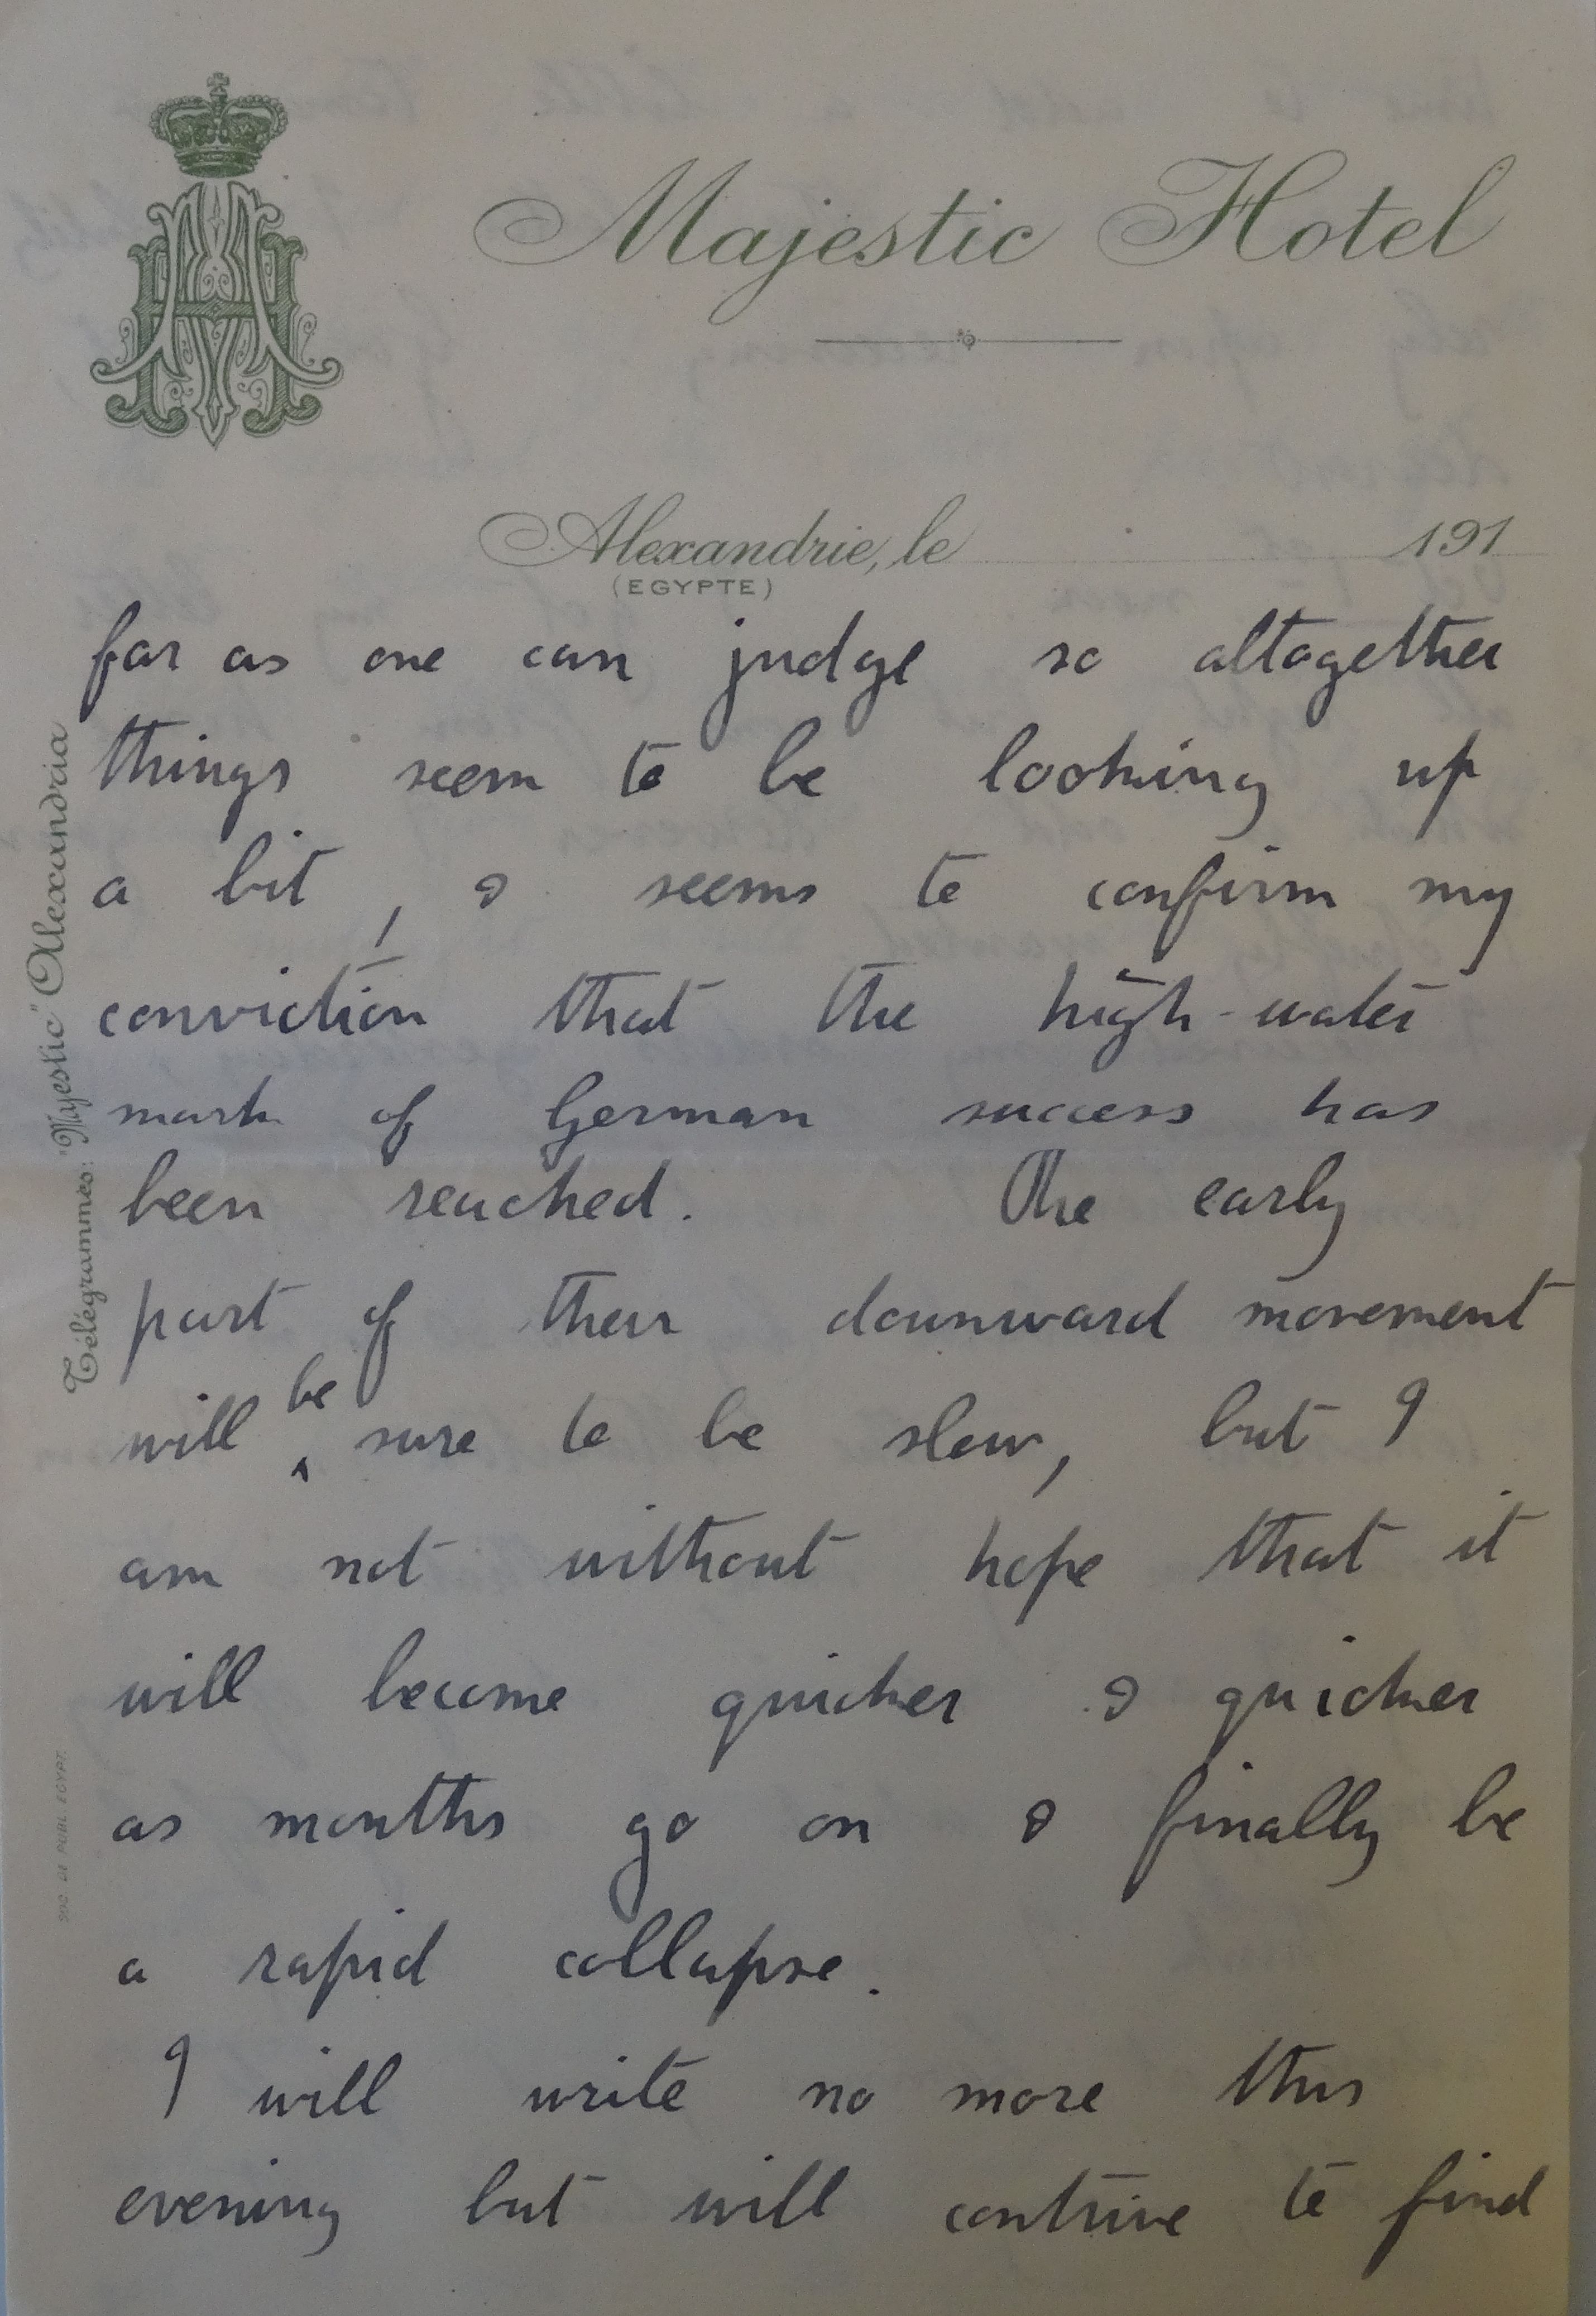 Majestic Hotel
Alexandrie, le 191
(EGYPTE)
Télégrammes: "Myestic" Alexandria
far as one can judge so altogether
things seem to be looking up
a bit, & seems to confirm my
conviction that the high-water
mark of German success has
been reached. The early
part of their downward movement
will be sure to be slow, but I
am not without hope that it
will become quicker & quicker
as months go on & finally be
a rapid collapse.
I will write no more this
evening but will contrive to find
SOC. DE PUBL. EGYPT.